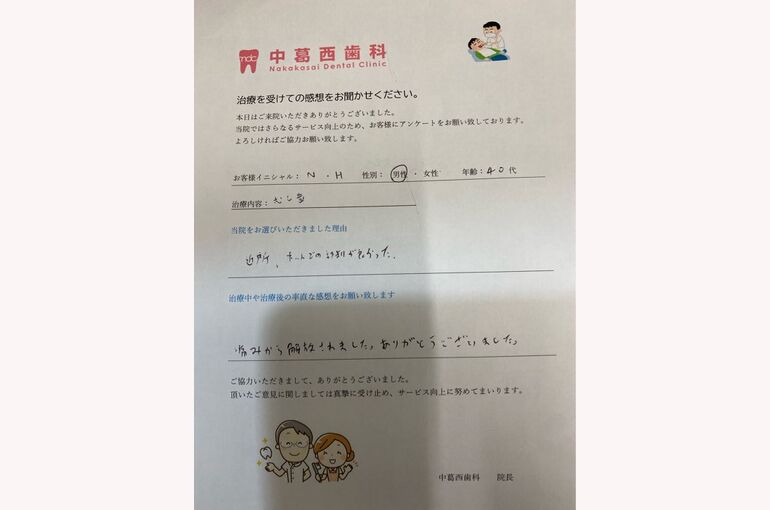 mdc
中葛西歯科
Nakakasai Dental Clinic
治療を受けての感想をお聞かせください。
本日はご来院いただきありがとうございました。
当院ではさらなるサービス向上のため、お客様にアンケートをお願い致しております。
よろしければご協力お願い致します。
お客様イニシャル: N ・ H 性別: 男性 ・ 女性 年齢: 40 代
治療内容: むし歯
当院をお選びいただきました理由
近所、ネットでの評判が良かった.
治療中や治療後の率直な感想をお願い致します
痛みから解放されました。ありがとうございました。
ご協力いただきまして、ありがとうございました。
頂いたご意見に関しましては真摯に受け止め、サービス向上に努めてまいります。
中葛西歯科 院長